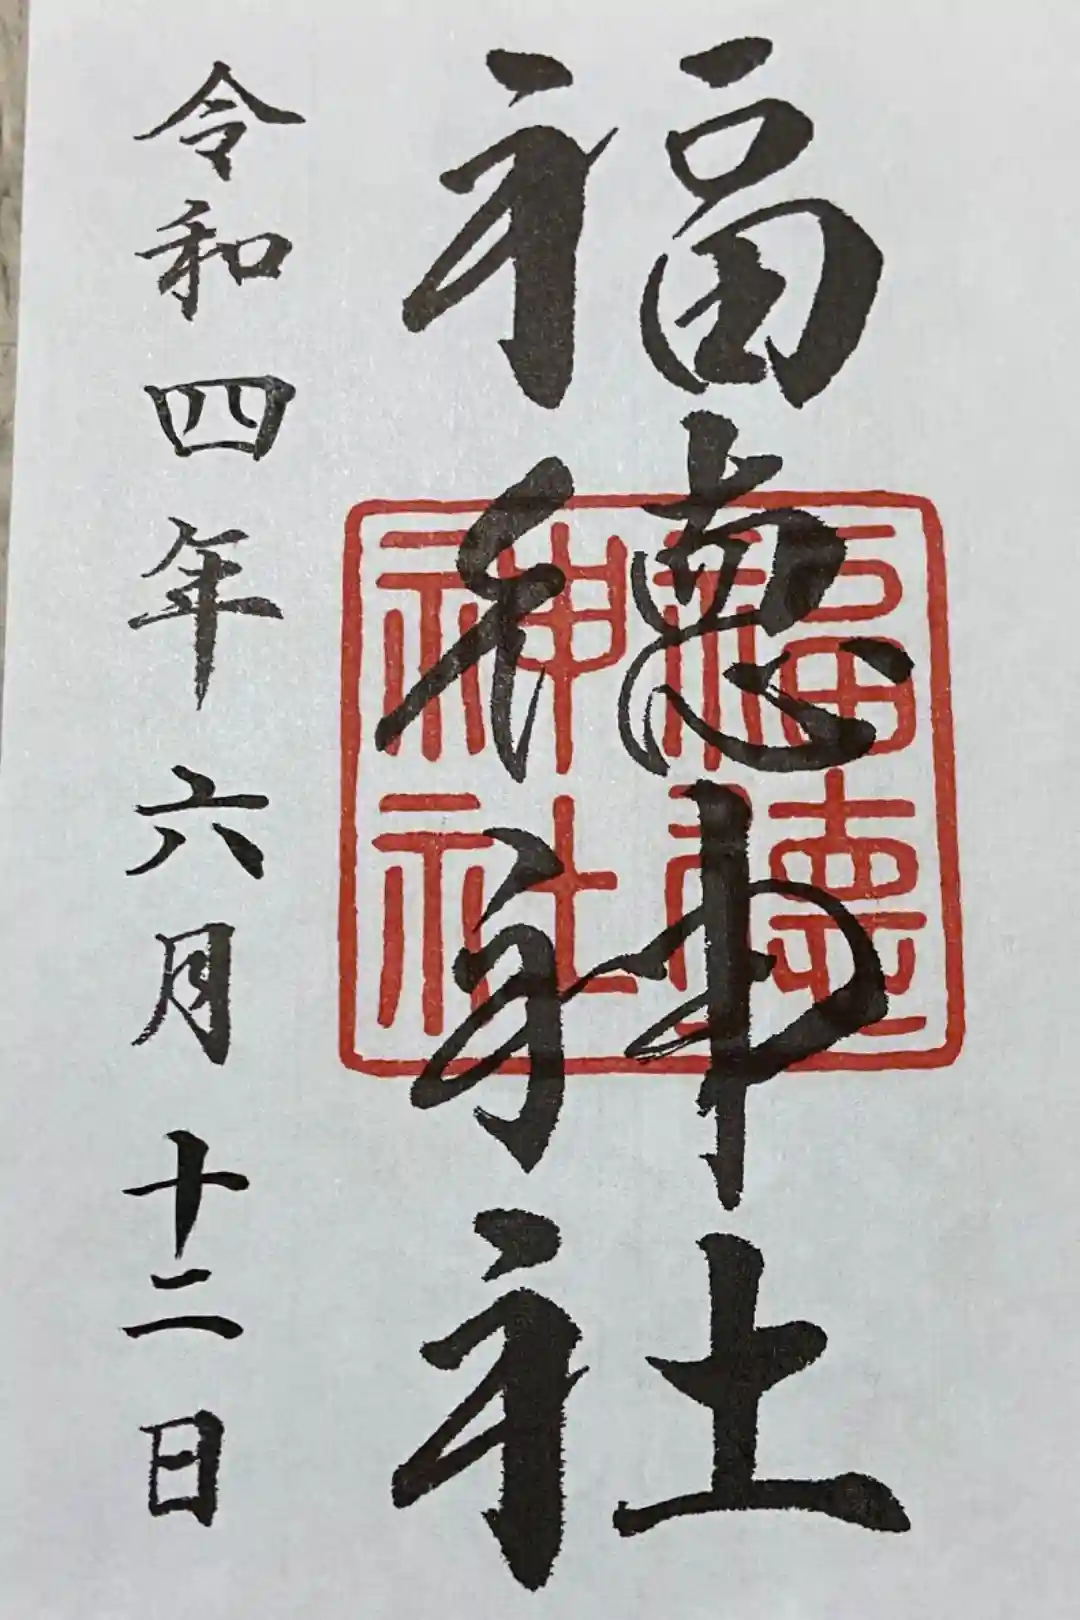 福徳神社
福徳
神社
令和四年六月十二日